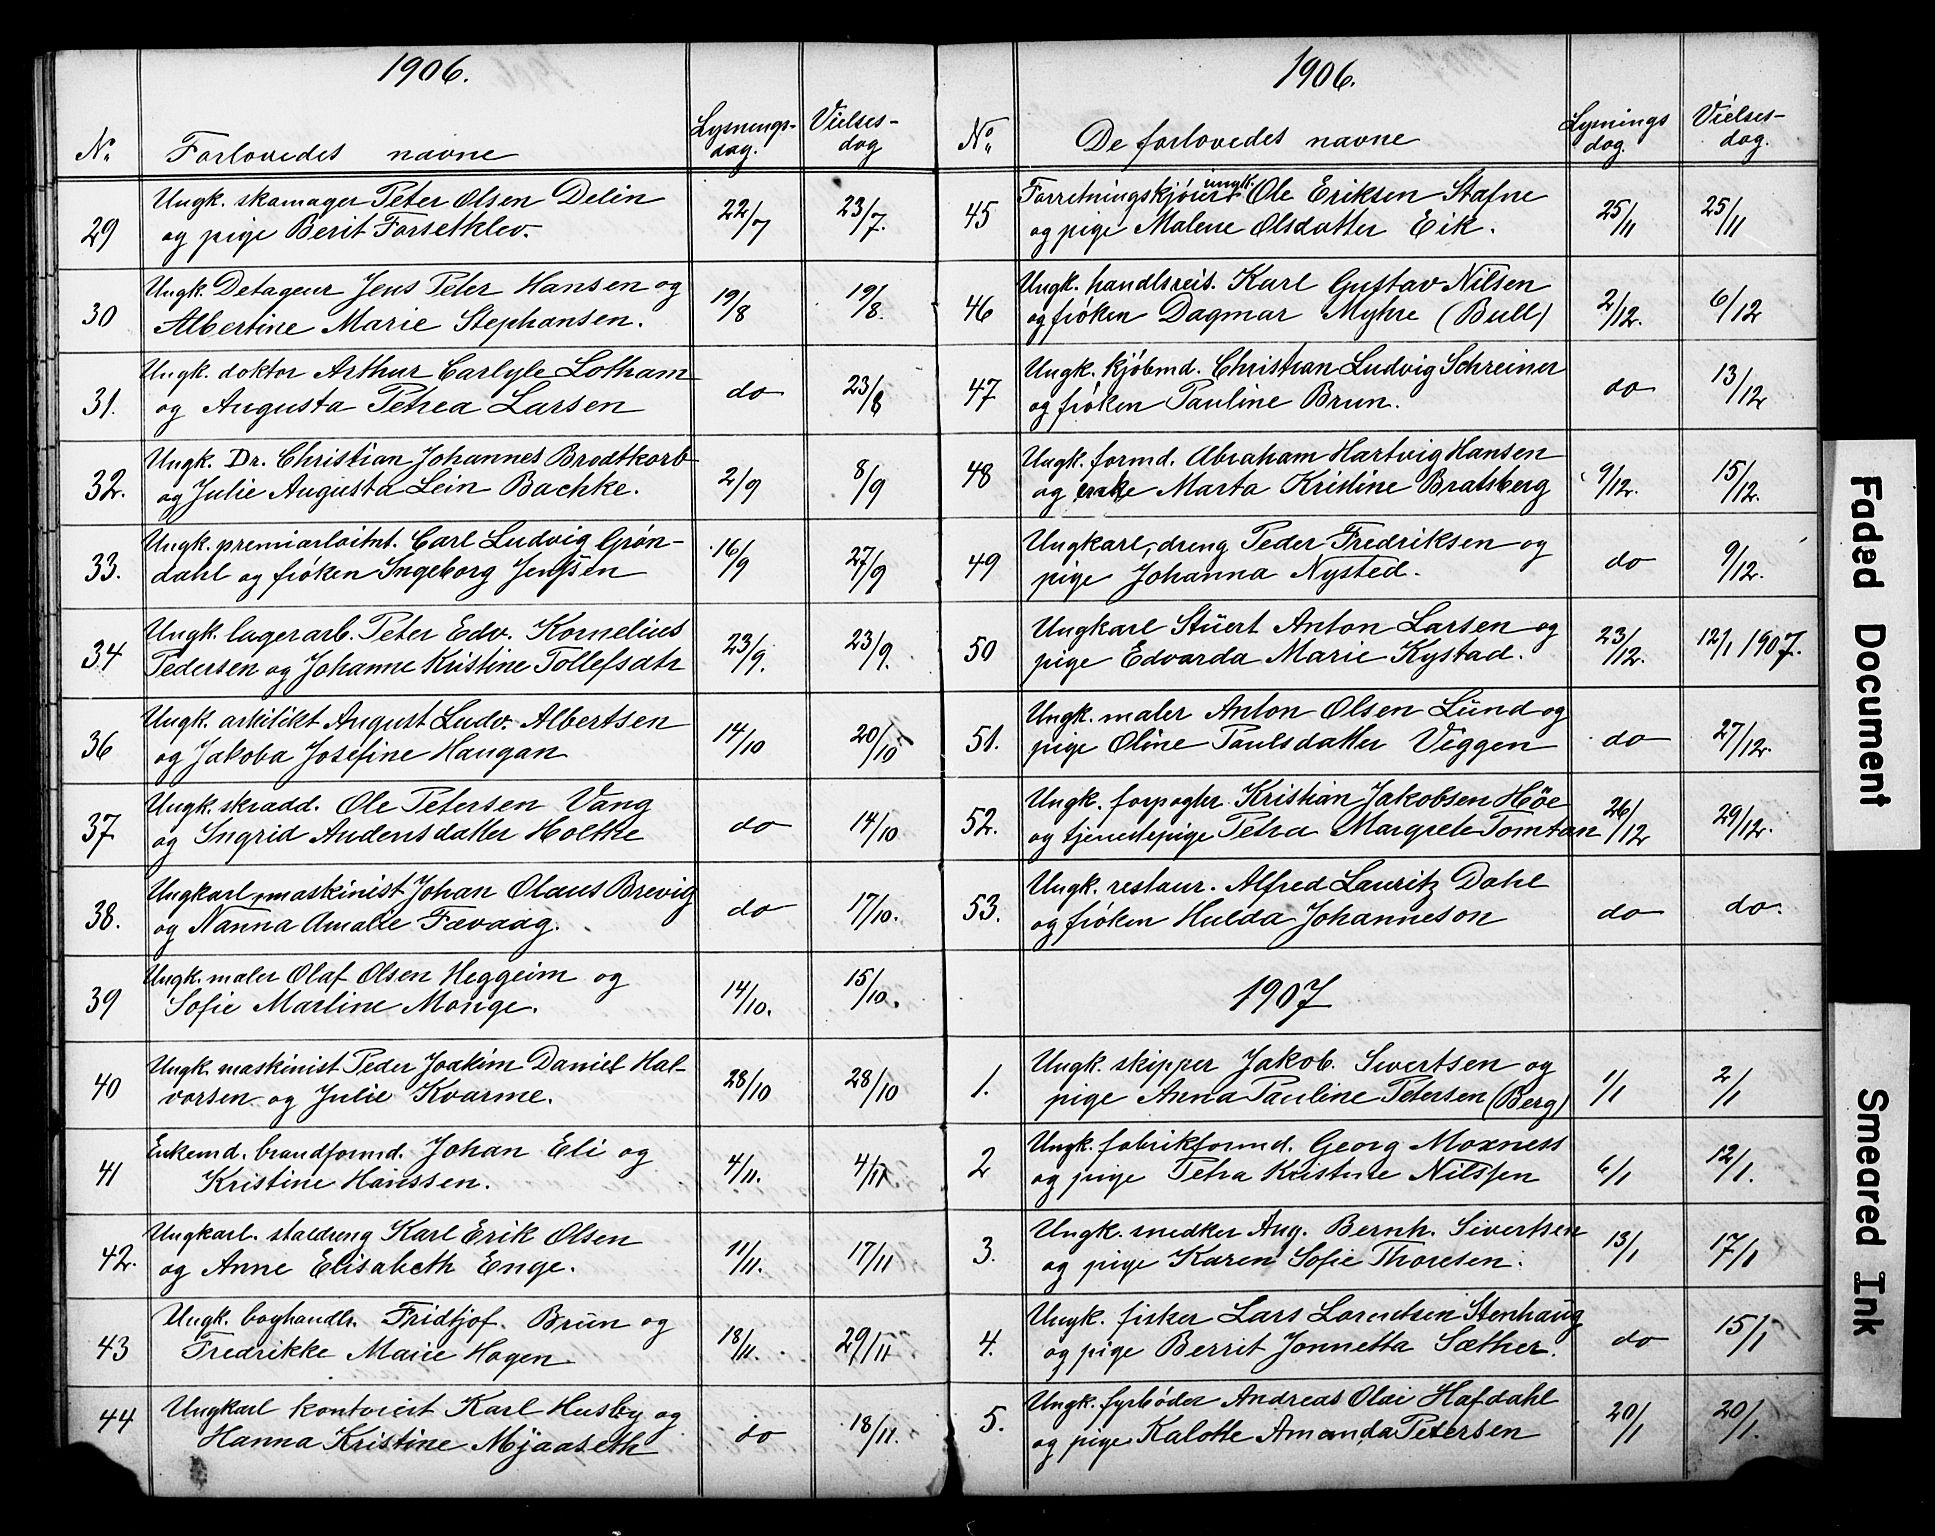 1906.
No. Forlovedes navne Lysnings-dag. Vielses-dag
29 Ungk. skomager Peter Olsen Delin 22/7 23/7.
og pige Berit Forsetklev.
30 Ungk. Detageur Jens Peter Hansen og 19/8 19/8.
Albertine Marie Stephansen.
31. Ungk. doktor Arthur Carlyle Lotham do 23/8
og Augusta Petrea Larsen
32. Ungk. Dr. Christian Johannes Brodtkorb 2/9 8/9
og Julie Augusta Lein Bachke.
33. Ungk. premiarloitnt. Carl Ludvig Grøn- 16/9 27/9
dahl og frøken Ingeborg Jenssen
34 Ungk. lagerarb. Peter Edv. Kornelius 23/9. 23/9.
Pedersen og Johanne Kristine Tollefsdtr
36 Ungk. arkitikt August Ludv. Albertsen 14/10 20/10
og Jakoba Josefine Haugan
37 Ungk. skradd. Ole Petersen Vang do 14/10
og Ingrid Andersdatter Holthe
38. Ungkarl, maskinist Johan Olaus Brevig do 17/10.
og Nanna Amalie Fævaag.
39 Ungk. maler Olaf Olsen Heggeim og 14/10. 15/10.
Sofie Martine Monge.
40 Ungk. maskinist Peder Joakim Daniel Hal- 28/10 28/10
vorsen og Julie Kvarme.
41 Enkemd. brandformd. Johan Eli og 4/11. 4/11
Kristine Hanssen.
42. Ungkarl. staldreng Karl Erik Olsen 11/11. 17/11
og Anne Elisabeth Enge.
43 Ungk. boghandlr. Fridtjof. Brun og 18/11. 29/11
Fredrikke Marie Hagen
44 Ungkarl kontorist Karl Husby og do 18/11.
Hanna Kristine Mjaaseth
1906.
No. De forlovedes navne Lysnings dag. Vielses-dag.
45 Forretningskjører ungk. Ole Eriksen Stafne 25/11 25/11
og pige Malene Olsdatter Eik.
46 Ungk. handlsreis. Karl Gustav Nilsen 2/12. 6/12
og frøken Dagmar Myhre (Bull)
47 Ungk. kjøbmd. Christian Ludvig Schreiner do 13/12
og frøken Pauline Brun.
48 Ungk. formd. Abraham Hartvig Hansen 9/12. 15/12.
og enke Marta Kristine Bratsberg
49 Ungkarl, dreng Peder Fredriksen og do 9/12.
pige Johanna Nysted.
50 Ungkarl Stuert Anton Larsen og 23/12. 12/1 1907.
pige Edvarda Marie Kystad.
51. Ungk. maler Anton Olsen Lund og do 27/12.
pige Oline Paulsdatter Viggen
52. Ungk. forpagter Kristian Jakobsen Høe 26/12 29/12.
og tjenestepige Petra Margrete Tomtan
53. Ungk. restaur. Alfred Lauritz Dahl do do.
og frøken Hulda Johanneson
1907
1. Ungk. skipper Jakob. Sivertsen og 1/1 2/1
pige Anna Pauline Petersen (Berg)
2 Ungk. fabrikformd. Georg Moxness 6/1 12/1.
og pige Petra Kristine Nilssen
3. Ungk. snedker Aug. Bernh. Sivertsen 13/1 17/1
og pige Karen Sofie Thoresen.
4. Ungk. fisker Lars Lorentsen Stenhaug do 15/1
og pige Berrit Jonnetta Sæther.
5. Ungk. fyrbøder Andreas Olai Hafdahl 20/1 20/1.
og pige Kalotte Amanda Petersen
Faded Document
Smeared Ink